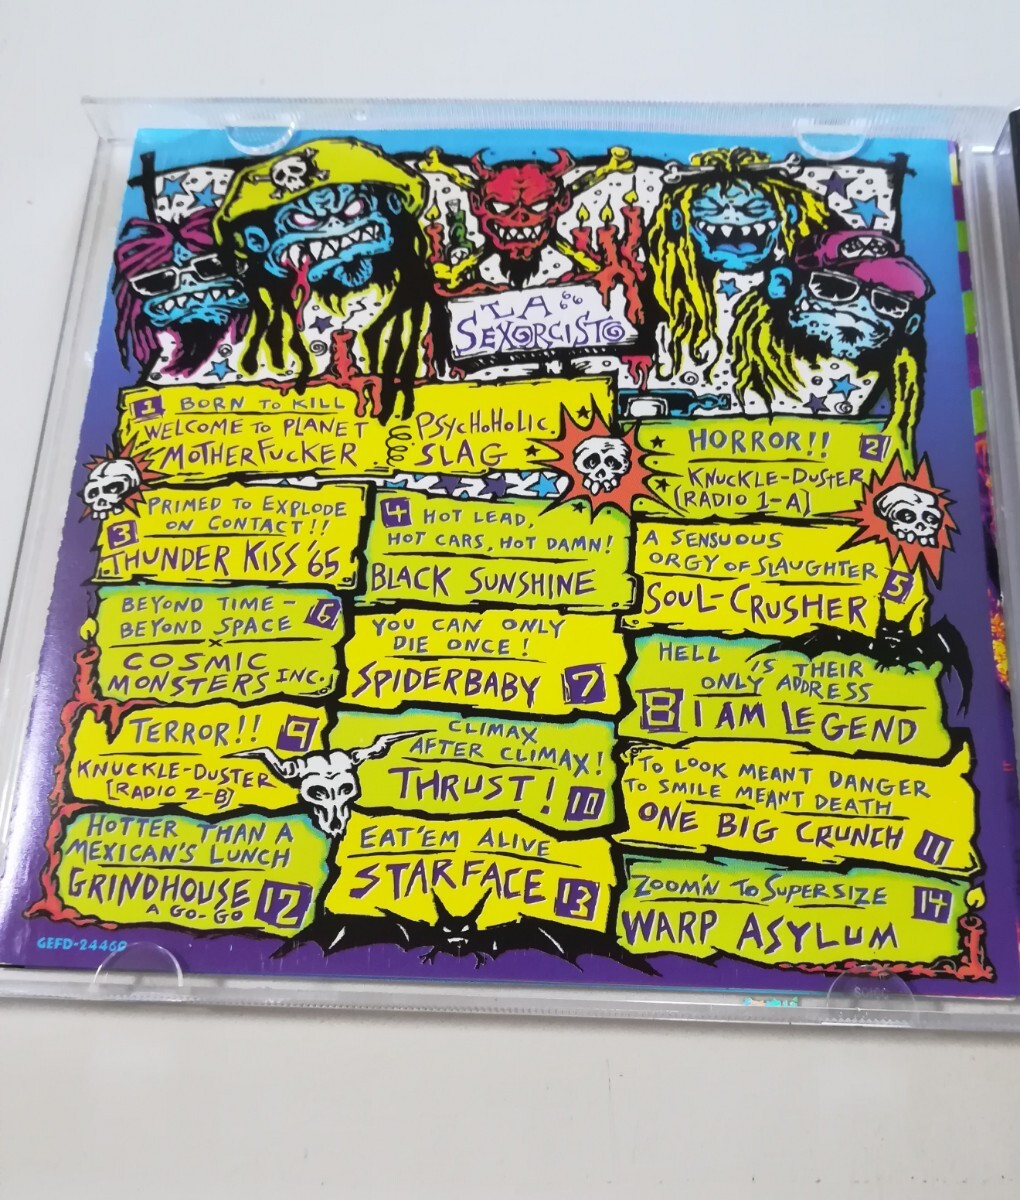 LA
SEXORCISTO
1 BORN TO KILL
WELCOME TO PLANET
MOTHERFUCKER
PSYCHOHOLIC
SLAG
HORROR!! 2
KNUCKLE-DUSTER
(RADIO 1-A)
PRIMED TO EXPLODE
3 ON CONTACT!!
THUNDER KISS '65
4 HOT LEAD,
HOT CARS, HOT DAMN!
BLACK SUNSHINE
A SENSUOUS
ORGY OF SLAUGHTER
5
SOUL-CRUSHER
BEYOND TIME-
BEYOND SPACE 6
COSMIC
MONSTERS INC.
YOU CAN ONLY
DIE ONCE!
SPIDERBABY 7
HELL IS THEIR
ONLY ADDRESS
8 I AM LEGEND
TERROR!! 9
KNUCKLE-DUSTER
(RADIO 2-B)
CLIMAX
AFTER CLIMAX!
THRUST! 10
TO LOOK MEANT DANGER
TO SMILE MEANT DEATH
ONE BIG CRUNCH 11
HOTTER THAN A
MEXICAN'S LUNCH
GRINDHOUSE 12
A GO-GO
EAT 'EM ALIVE
STARFACE 13
ZOOM'N TO SUPERSIZE 14
WARP ASYLUM
GEFD-24460